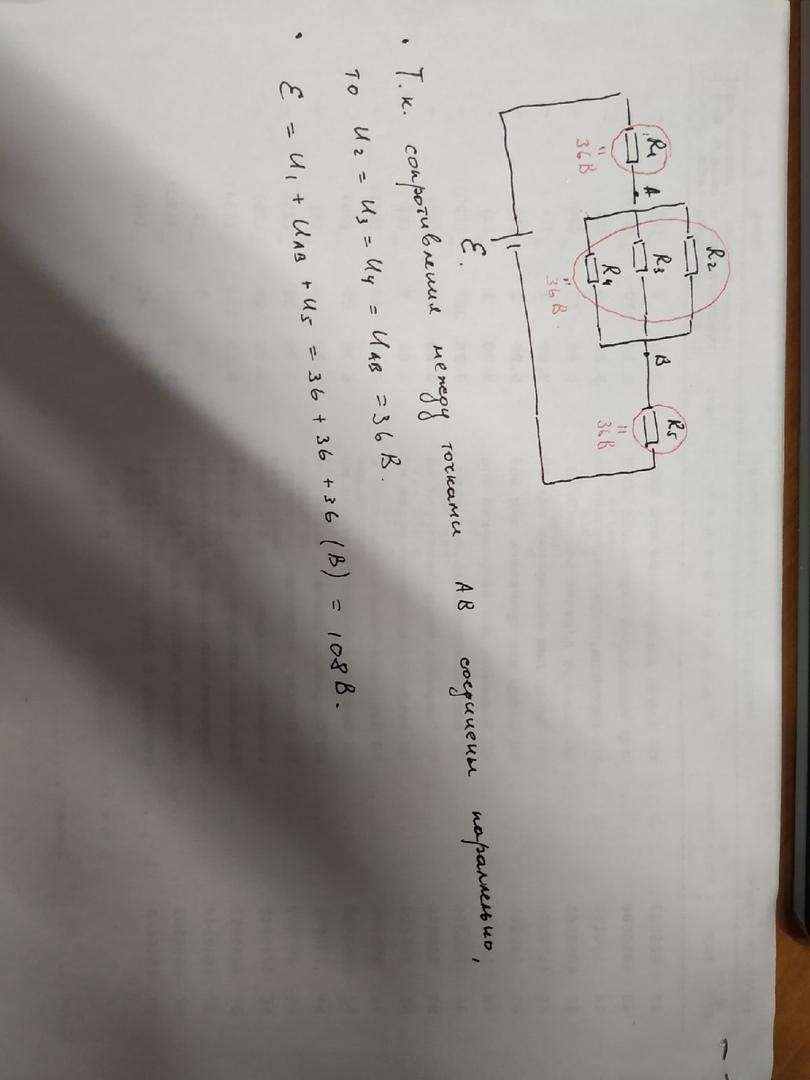 R1
"
36В
A
R2
R3
R4
"
36В.
B
R5
"
36В
ℰ.
• Т.к. сопротивления между точками AB соединены параллельно,
то U2 = U3 = U4 = UAB = 36 В.
• ℰ = U1 + UAB + U5 = 36 + 36 + 36 (В) = 108 В.